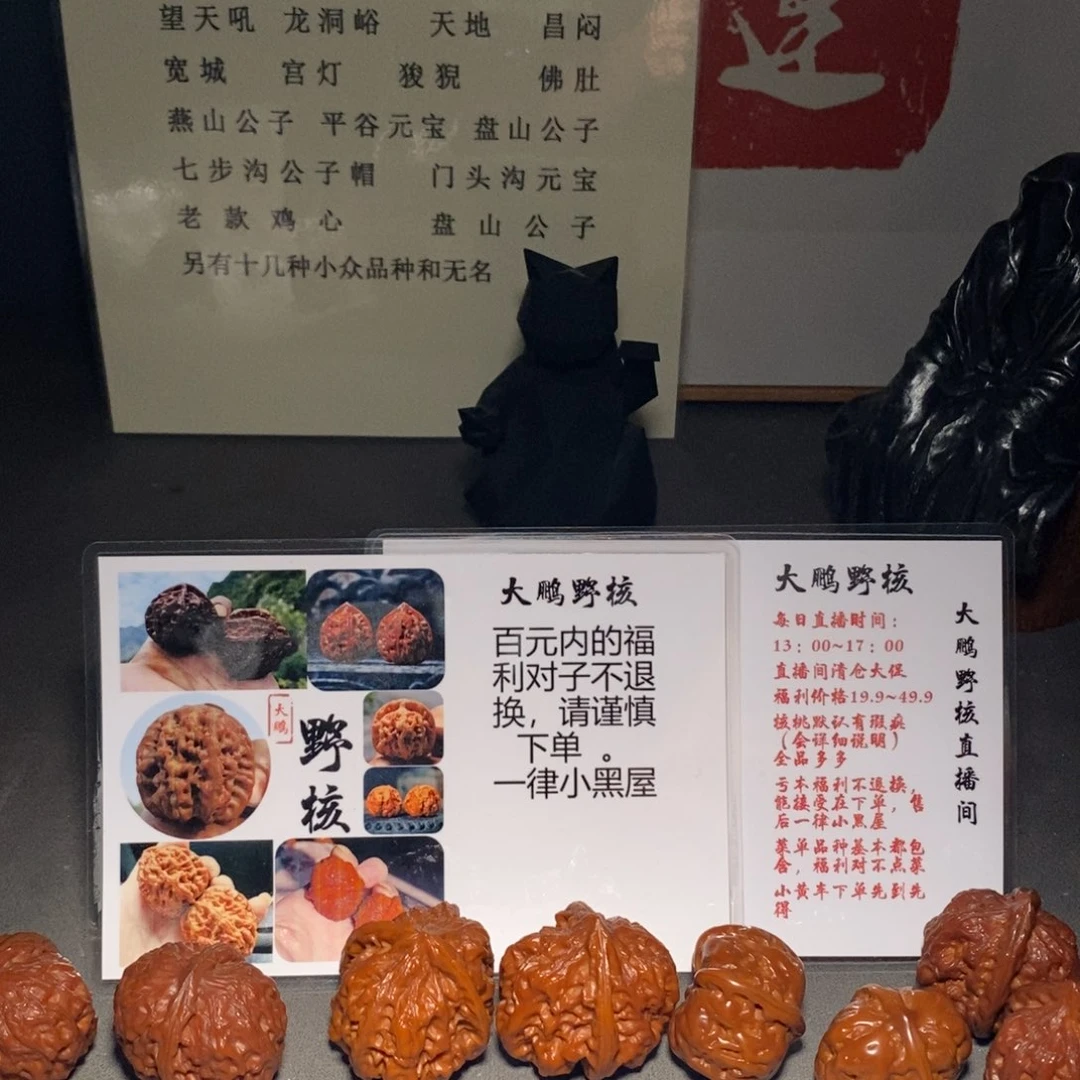 望天吼 龙洞峪 天地 昌闷
宽城 宫灯 狻猊 佛肚
燕山公子 平谷元宝 盘山公子
七步沟公子帽 门头沟元宝
老款鸡心 盘山公子
另有十几种小众品种和无名
大鹏
野核
大鹏野核
百元内的福
利对子不退
换，请谨慎
下单 。
一律小黑屋
大鹏野核
每日直播时间：
13：00~17：00
直播间清仓大促
福利价格19.9~49.9
核桃默认有瑕疵
（会详细说明）
全品多多
亏本福利不退换，
能接受在下单，售
后一律小黑屋
菜单品种基本都包
含，福利对不点菜
小黄车下单先到先
得
大鹏野核直播间